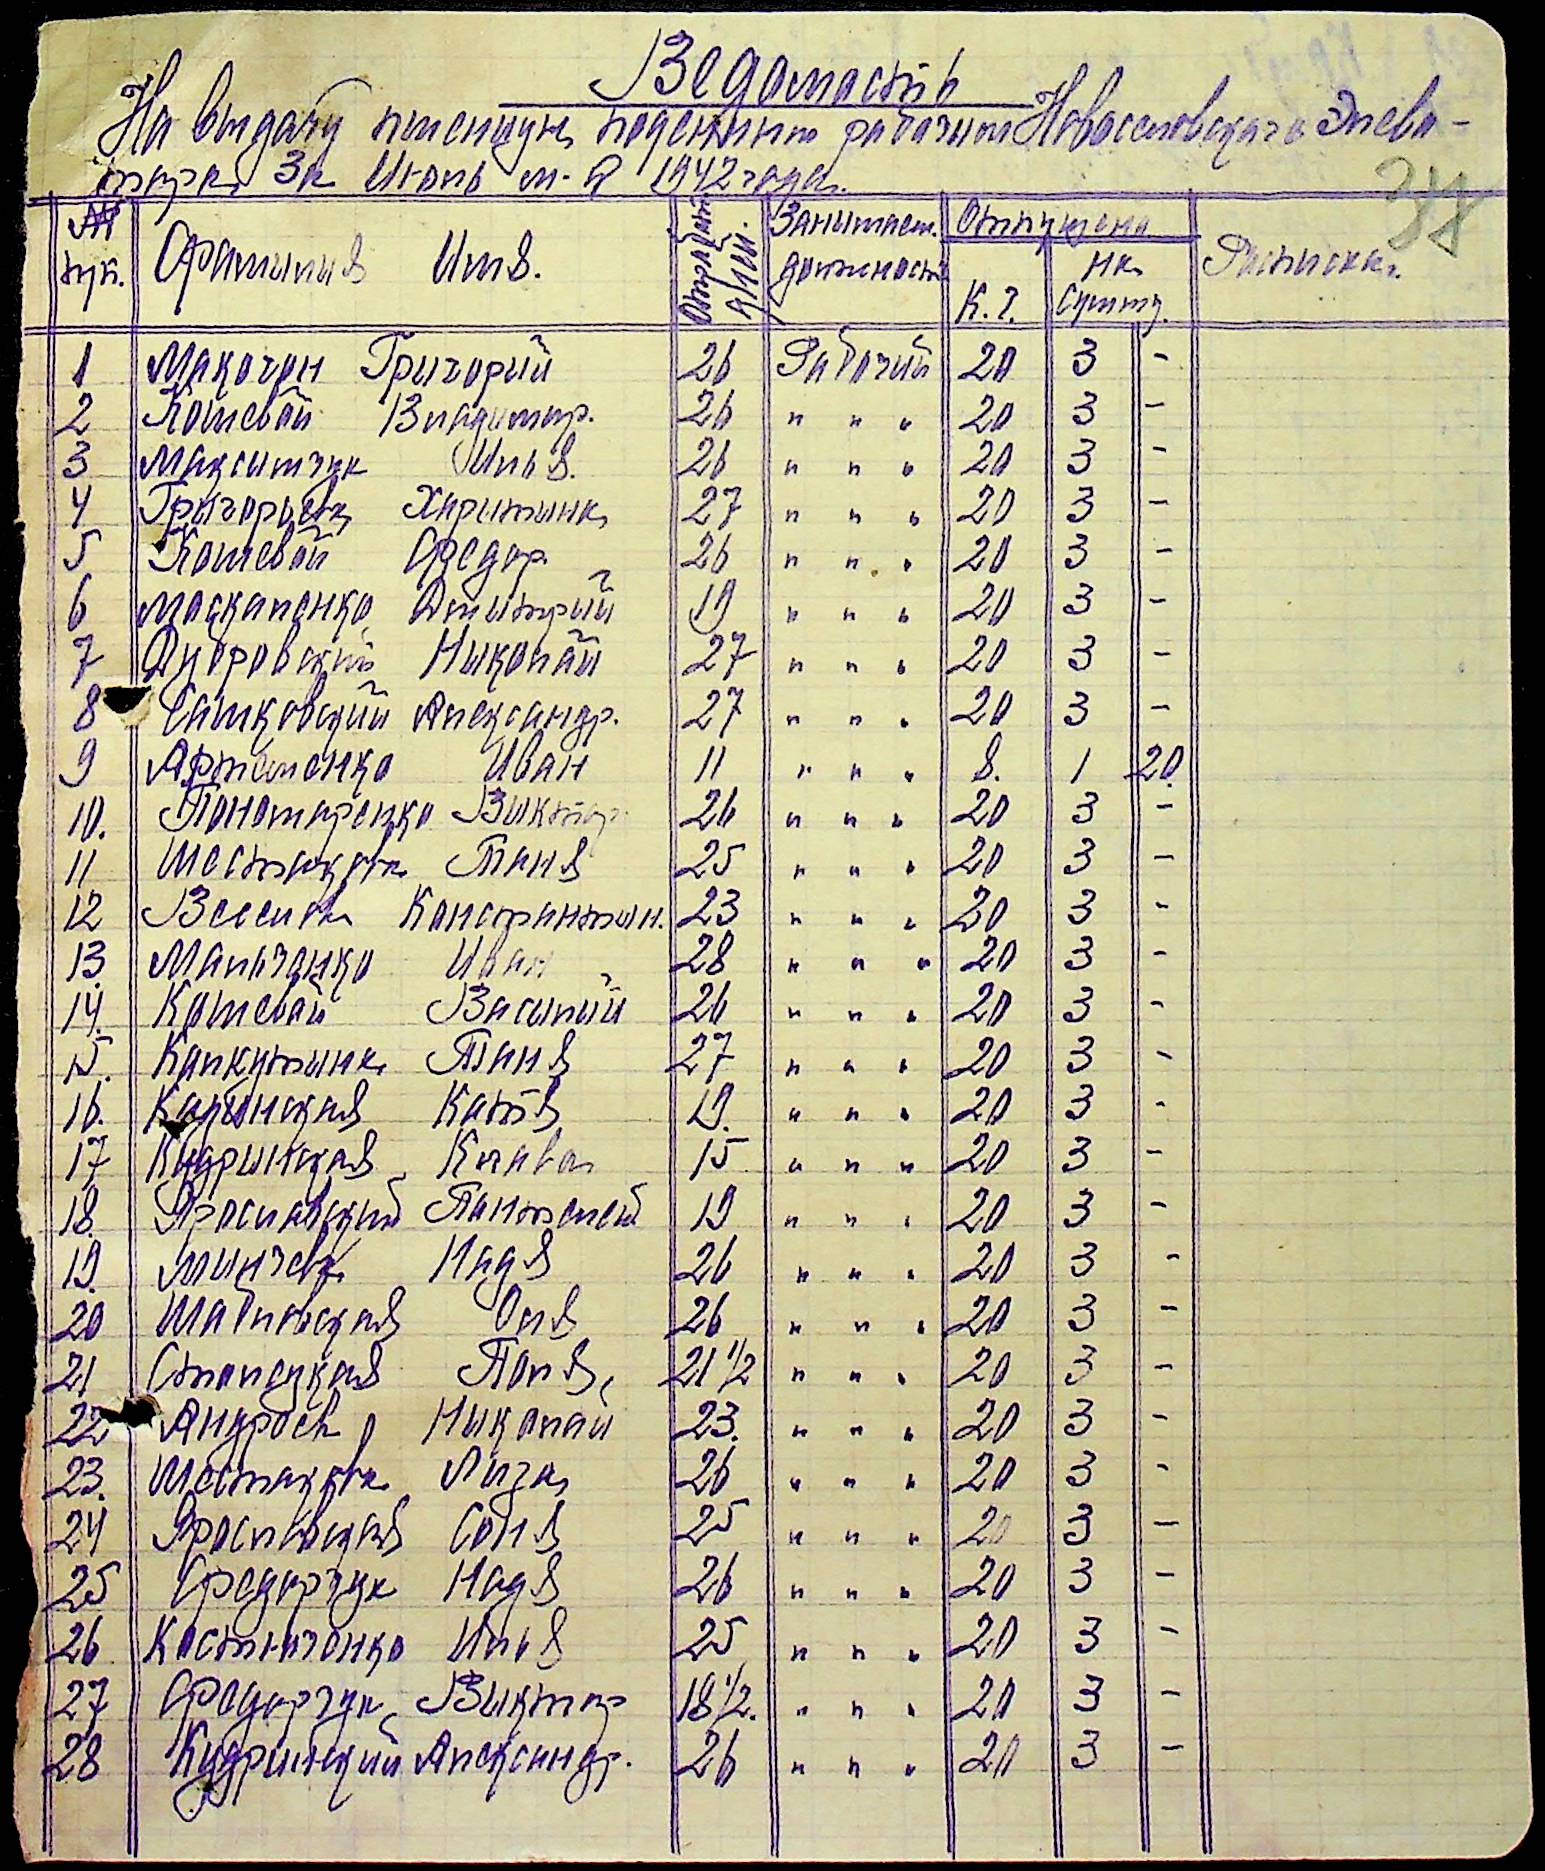 Ведомость
На выдачу пшеницы поденным рабочим Новоселовского Элева-
тора За Июнь м-ц 1942 года.
38
№ п/п. Фамилия Имя. Отработ. дней. Занимаем. должность Отпущено К.Г. на сумму. Расписка.
1 Макогон Григорий 26 Рабочий 20 3 -
2 Кошевой Владимир. 26 " " " 20 3 -
3 Максимчук Илья. 26 " " " 20 3 -
4 Григорьева Харитина 27 " " " 20 3 -
5 Кошевой Федор 26 " " " 20 3 -
6 Москаленко Дмытрий 19 " " " 20 3 -
7 Дубровский Ныколай 27 " " " 20 3 -
8 Сатковский Александр. 27 " " " 20 3 -
9 Артеменко Иван 11 " " " 8. 1 20.
10. Пономаренко Выктор 26 " " " 20 3 -
11 Шестакова Таня 25 " " " 20 3 -
12 Константын. 23 " " " 20 3 -
13 Мальченко Иван 28 " " " 20 3 -
14. Кошевой Васылий 26 " " " 20 3 -
15. Калкутына Таня 27 " " " 20 3 -
16. Катя 19. " " " 20 3 -
17 Кудрынская Клава 15 " " " 20 3 -
18. Ярославский Пантелей 19 " " " 20 3 -
19. Мынчева Надя 26 " " " 20 3 -
20 Шабловская Оля 26 " " " 20 3 -
21 Поля 21 1/2 " " " 20 3 -
22 Андроев Ныколай 23. " " " 20 3 -
23. Шестакова Лиза 26 " " " 20 3 -
24 Ярославская Соня 25 " " " 20 3 -
25 Федорчук Надя 26 " " " 20 3 -
26 Костюченко Илья 25 " " " 20 3 -
27 Федорчук Выктор 18 1/2. " " " 20 3 -
28 Кудринский Александр. 26 " " " 20 3 -